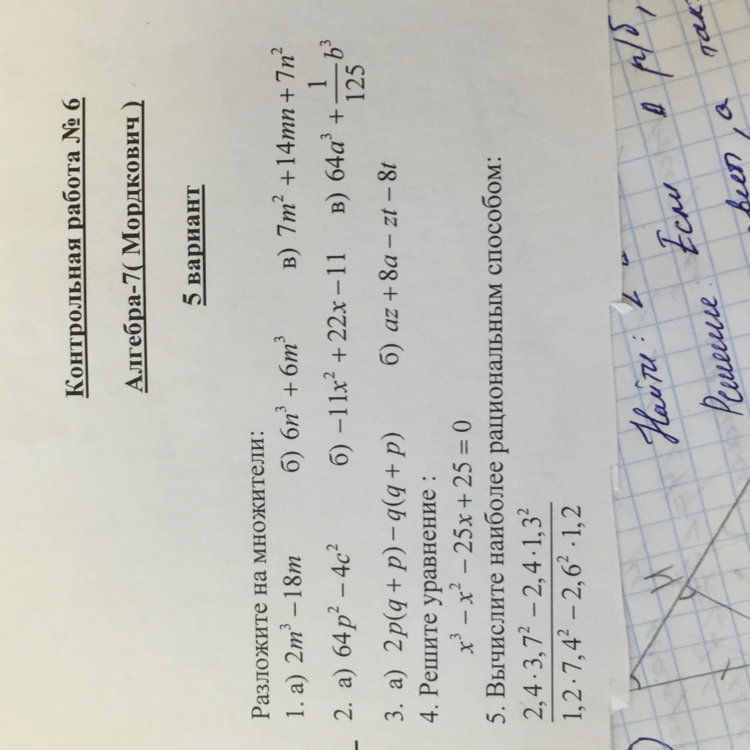 Контрольная работа № 6
Алгебра-7( Мордкович )
5 вариант
Разложите на множители:
1. а) 2m³ −18m б) 6n³ + 6m³ в) 7m² +14mn + 7n²
2. а) 64p² − 4c² б) −11x² + 22x −11 в) 64a³ + 1/125 b³
3. а) 2p(q + p) − q(q + p) б) az + 8a − zt − 8t
4. Решите уравнение :
x³ − x² − 25x + 25 = 0
5. Вычислите наиболее рациональным способом:
2,4·3,7² − 2,4·1,3²
1,2·7,4² − 2,6²·1,2
Найти:
Решение: Если в р/б,
а так